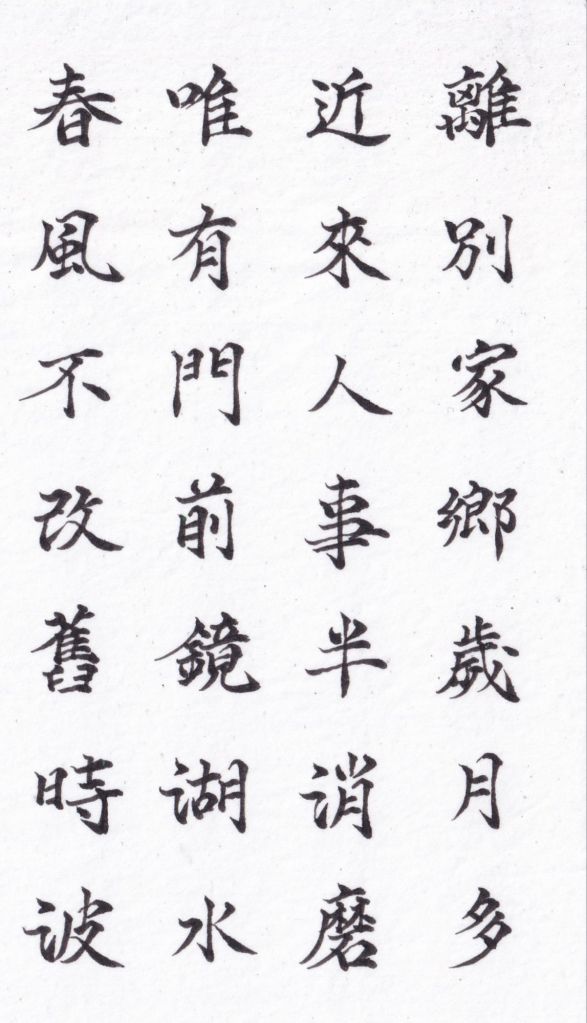 離別家鄉歲月多
近來人事半消磨
唯有門前鏡湖水
春風不改舊時波